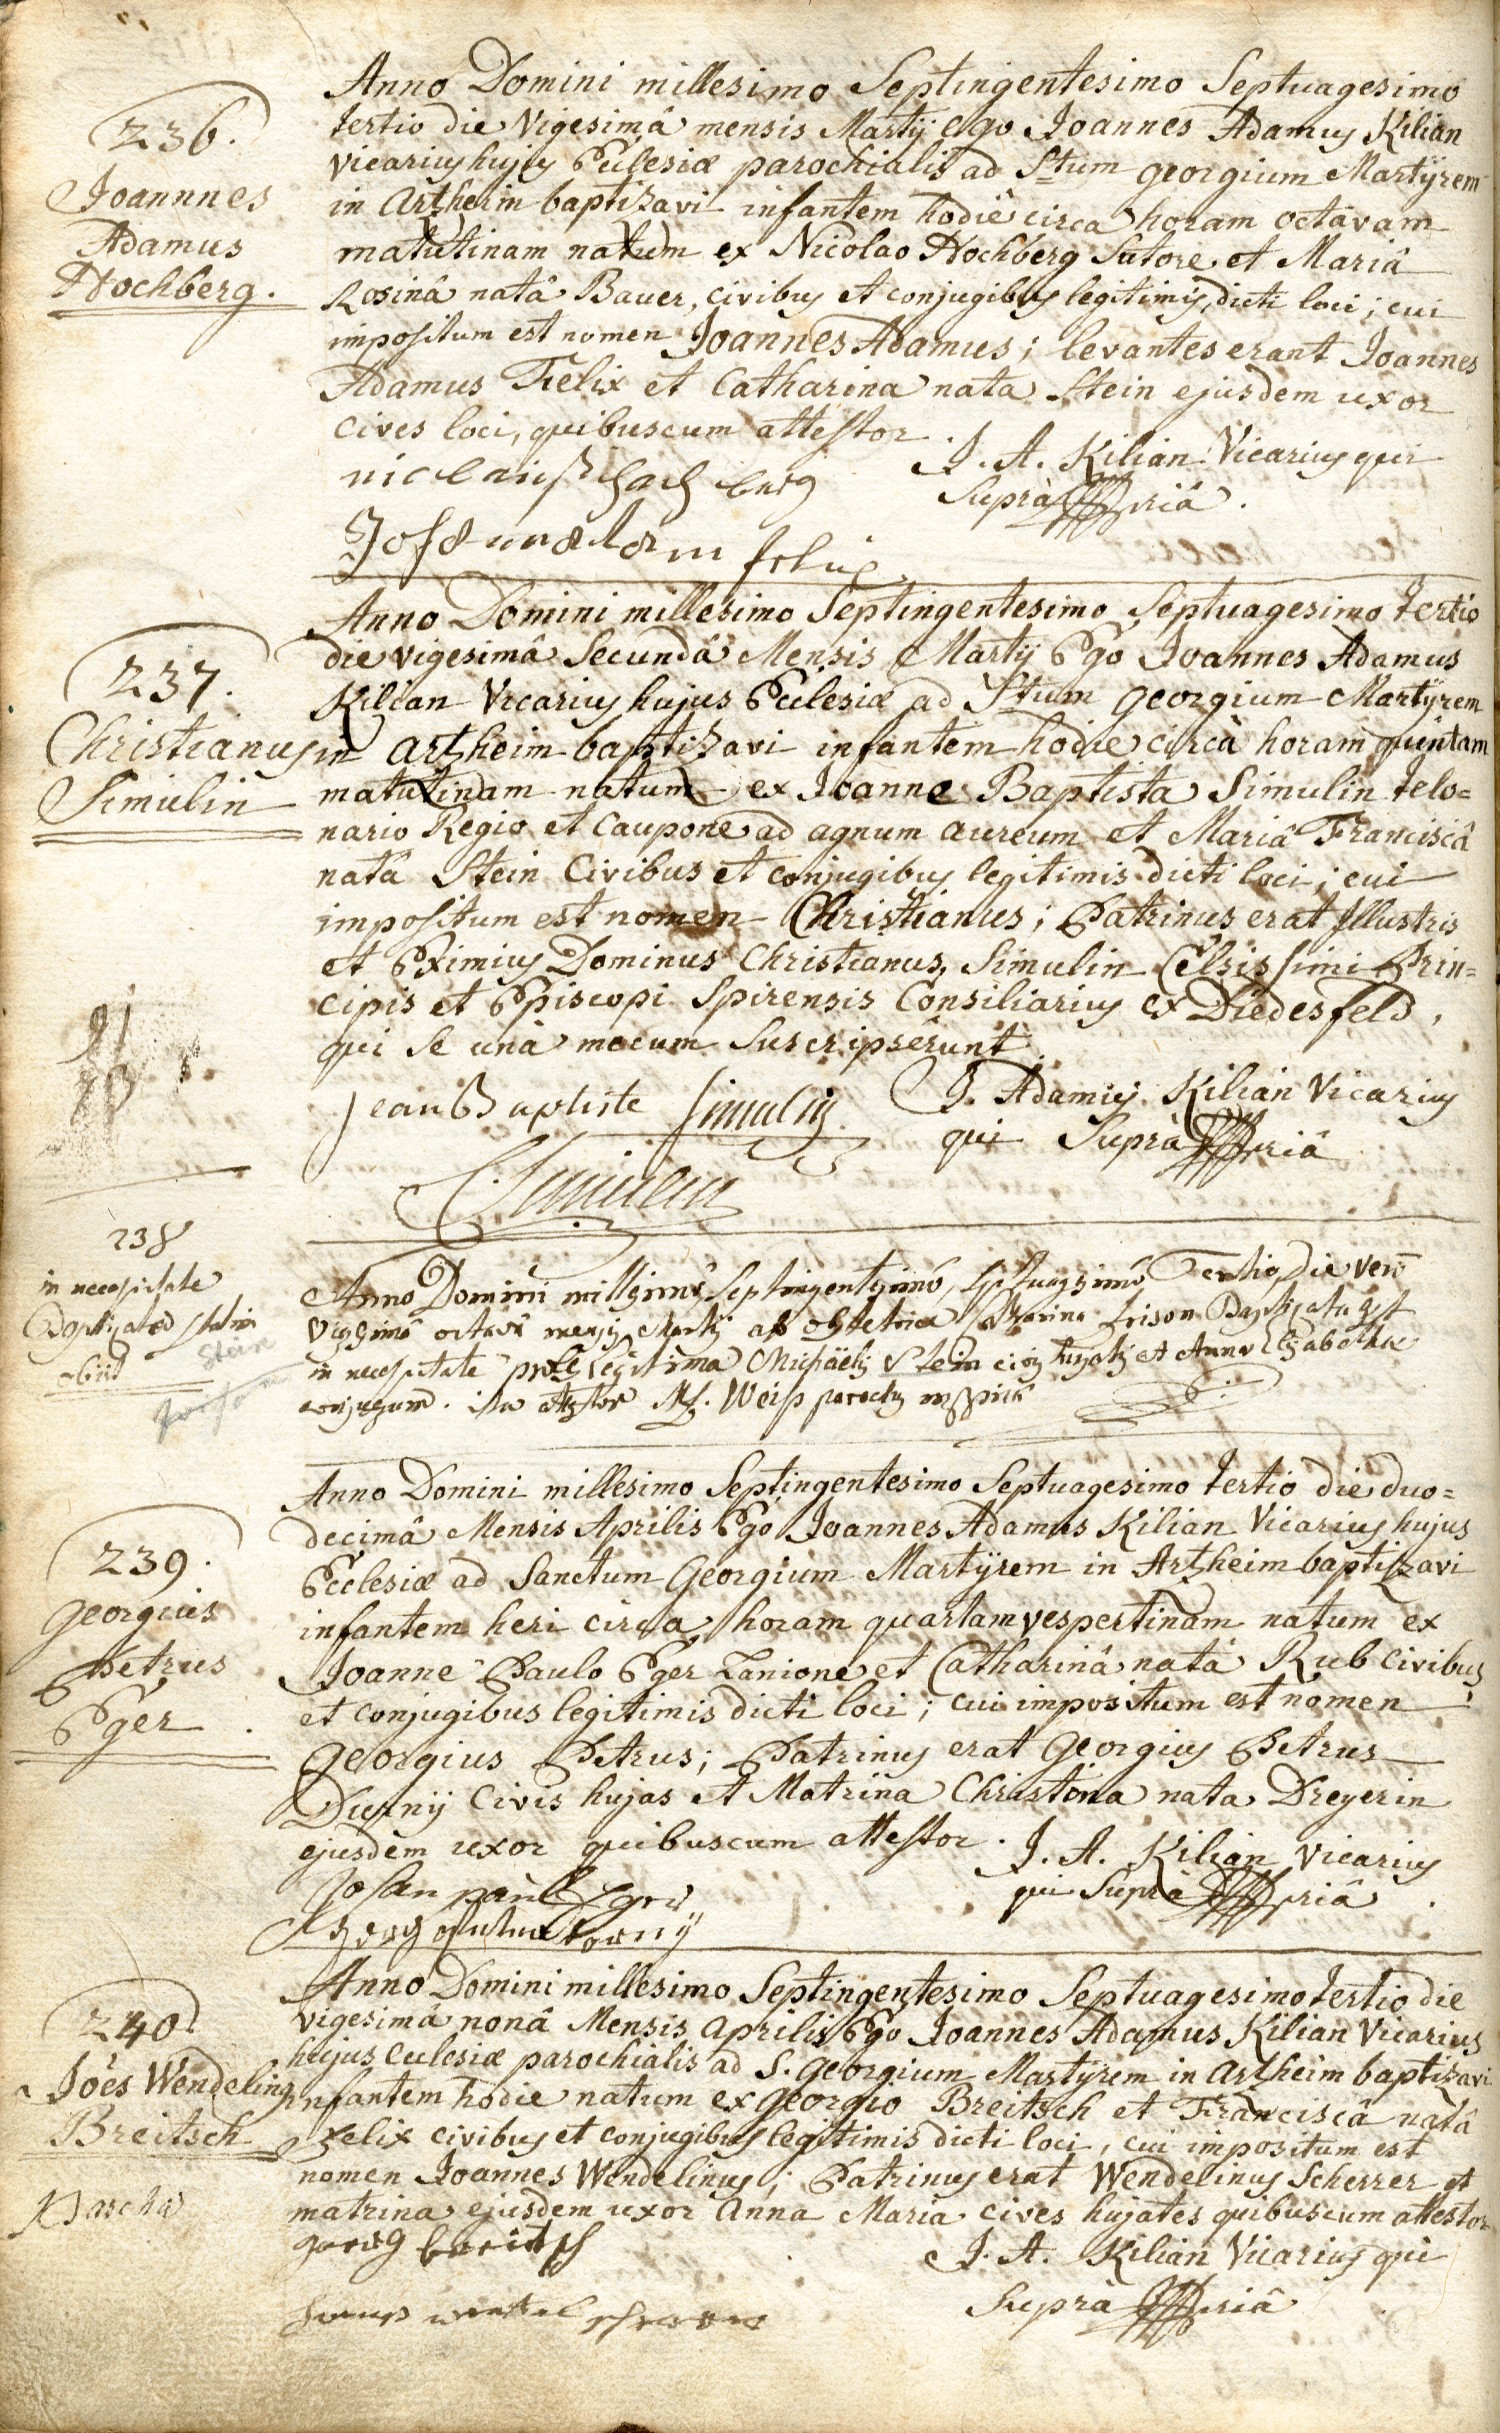 236.
Joannnes
Adamus
Hochberg.
Anno Domini millesimo Septingentesimo Septuagesimo
tertio die Vigesimâ mensis Martij ego Joannes Adamus Kilian
Vicarius hujus Ecclesiæ parochialis ad Stum georgium Martÿrem
in Artzheim baptizavi infantem hodie circa horam octavam
matutinam natum ex Nicolao Hochberg Sutore et Mariâ
Rosinâ natâ Bauer, civibus et conjugibus legitimis dicti loci; cui
impositum est nomen Joannes Adamus; levantes erant Joannes
Adamus Felix et Catharina nata Stein ejusdem uxor
cives loci, quibuscum attestor.
J. A. Kilian Vicarius qui
Suprà priâ.
237.
Christianus
Simulin
Anno Domini millesimo Septingentesimo Septuagesimo tertio
die vigesimâ Secundâ Mensis Martij Ego Joannes Adamus
Kilian Vicarius hujus Ecclesiæ ad Stum georgium Martÿrem
in Artzheim baptizavi infantem hodie circà horam quintam
matutinam natum ex Joanne Baptista Simulin telo=
nario Regio et Caupone ad agnum aureum et Mariâ Franciscâ
natâ Stein Civibus et conjugibus legitimis dicti loci; cui
impositum est nomen Christianus; Patrinus erat Illustris
et Eximius Dominus Christianus Simulin Celsissimi Prin=
cipis et Episcopi Spirensis Consiliarius ex Diedesfeld,
qui se unà mecum Suscripserunt.
Jean Baptiste Simulin
J. Adamus Kilian Vicarius
qui Suprà priâ
CSimulin
238
in necessitate
Baptizatus statim
obiit
Stein
Anno Domini millesimo Septingentesimo, Septuagesimo Tertio, Die vero
Vigesimâ octavâ mensis Martij ab obstetrice Catharina Frison Baptizata est
in necessitate proles legitima Michaëlis Stein civis hujatis et Annæ Elisabethæ
conjugum. ita attestor M. Weiss parochus mppriâ
239.
georgius
Petrus
Eger
Anno Domini millesimo Septingentesimo Septuagesimo tertio die duo=
decimâ Mensis Aprilis Ego Joannes Adamus Kilian Vicarius hujus
Ecclesiæ ad Sanctum Georgium Martÿrem in Artzheim baptizavi
infantem heri circa horam quartam vespertinam natum ex
Joanne Paulo Eger Lanione et Catharinâ natâ Rub civibus
et conjugibus legitimis dicti loci; cui impositum est nomen
georgius Petrus; Patrinus erat georgius Petrus
Durnij Civis hujas et Matrina Christina nata Dreyerin
ejusdem uxor quibuscum attestor.
J. A. Kilian Vicarius
qui Suprà priâ
Johan paul Eger
240.
Joes Wendelinus
Breitsch
Pascha
Anno Domini millesimo Septingentesimo Septuagesimo tertio die
vigesimâ nonâ Mensis Aprilis Ego Joannes Adamus Kilian Vicarius
hujus Ecclesiæ parochialis ad S. Georgium Martÿrem in Artzheim baptizavi
infantem hodie natum ex georgio Breitsch et Franciscâ natâ
Felix civibus et conjugibus legitimis dicti loci, cui impositum est
nomen Joannes Wendelinus; Patrinus erat Wendelinus Scherrer et
matrina ejusdem uxor Anna Maria cives hujates quibuscum attestor
J. A. Kilian Vicarius qui
Suprà priâ